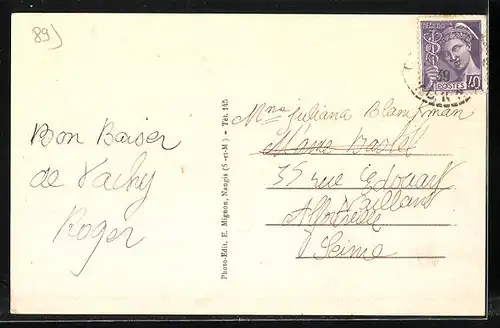 89
Bon Baiser
de Vachy
Roger
Photo-Edit. E. Mignon, Nangis (S.-et-M.) – Tél. 145
Mme Juliana Blanckman
35 rue Edouard
Vaillant
Seine
39
POSTES
40